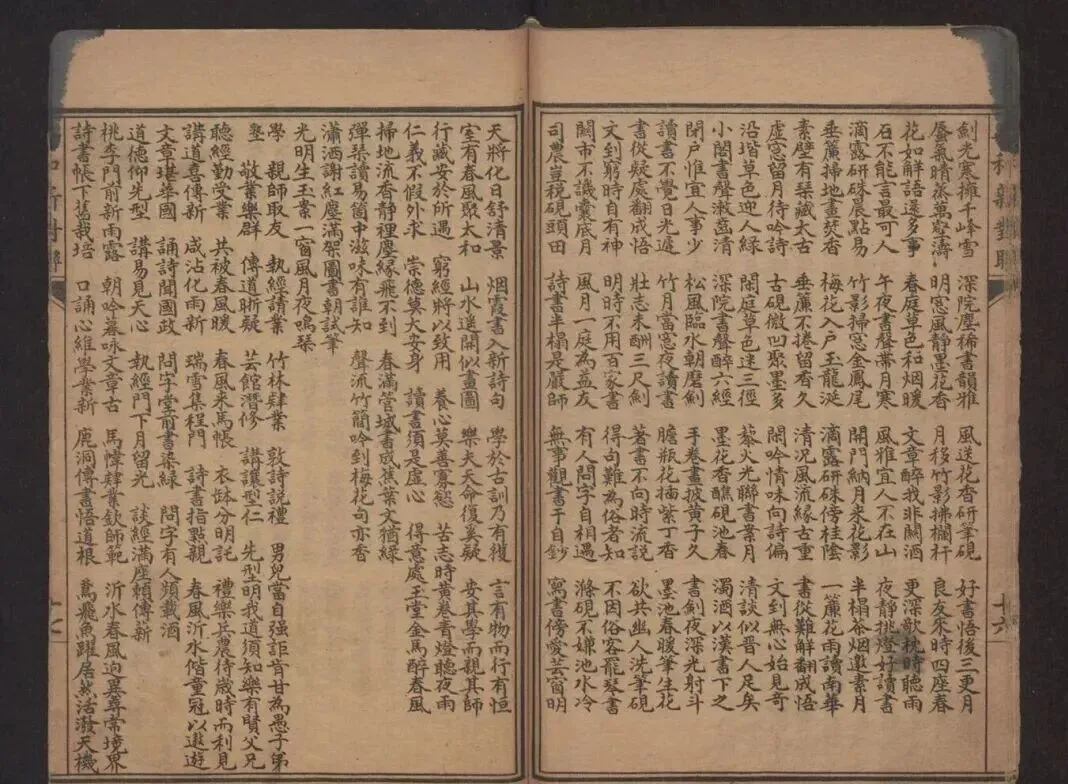 劍光寒擁千峰雪 深院塵稀書韻雅 風送花香研筆硯 好書悟後三更月
蜃氣晴蒸萬窓濤 明窓風靜墨花香 月移竹影拂欄杆 良友來時四座春
花如解語還多事 春庭草色和烟暖 文章醉我非關酒 更深欹枕時聽雨
石不能言最可人 午夜書聲帶月寒 風雅宜人不在山 夜靜挑燈好讀書
滴露研硃晨點易 竹影掃窓金鳳尾 開門納月來花影 半榻茶烟邀素月
垂簾掃地晝焚香 梅花入戶玉龍涎 滴露研硃傍桂陰 一簾花雨讀南華
素壁有琴藏太古 垂簾不捲留香久 清況風流緣古重 書從難解翻成悟
虛窓留月待吟詩 古硯微凹聚墨多 閑吟情味向詩偏 文到無心始見奇
沿堦草色迎人綠 閑庭草色迷三徑 藜火光聯書案月 清談似晉人足矣
小閣書聲潄齒清 深院書聲醉六經 墨花香醮硯池春 濁酒以漢書下之
閉戶惟宜人事少 松風臨水朝磨劍 手卷晝披黃子久 書劍夜深光射斗
讀書不覺日光遲 竹月當窓夜讀書 膽瓶花插紫丁香 墨池春暖筆生花
書從疑處翻成悟 壯志未酬三尺劍 著書不向時流說 欲共幽人洗筆硯
文到窮時自有神 明時不用百家書 得句難為俗者知 不因俗客罷琴書
關市不譏囊底月 風月一庭為益友 有人問字自相遇 滌硯不嫌池水冷
司農豈稅硯頭田 詩書半榻是嚴師 無事觀書手自鈔 寫書傍愛芸窗明
天將化日舒清景 烟霞書入新詩句 學於古訓乃有獲 言有物而行有恒
室有春風聚太和 山水遙開似畫圖 樂夫天命復奚疑 安其學而親其師
行藏安於所遇 窮經將以致用 養心莫善寡慾 苦志時黃卷青燈聽夜雨
仁義不假外求 崇德莫大安身 讀書須是虛心 得意處玉堂金馬醉春風
掃地流香靜裡塵緣飛不到 春滿管城書成蕉葉文猶綠
彈琴讀易箇中滋味有誰知 聲流竹簡吟到梅花句亦香
瀟洒謝紅塵滿架圖書朝試筆
光明生玉案一窗風月夜鳴琴
學 親師取友 執經請業 竹林肄業 敦詩說禮 男兒當自强詎肯甘為愚子弟
塾 敬業樂群 傳道晰疑 芸館潛修 講讓型仁 先型明我道須知樂有賢父兄
聽經勤受業 共被春風暖 春風來馬帳 衣缽分明託 禮樂兵農待歲時而利見
講道喜傳新 咸沾化雨新 瑞雪集程門 詩書指點親 春風沂水偕童冠以遨遊
文章堪華國 誦詩聞國政 問字堂前書染綠 問字有人頻載酒
道德仰先型 講易見天心 執經門下月留光 談經滿座頼傳新
桃李門前新雨露 朝吟暮咏文章古 馬幃肄業欽師範 沂水春風迥異尋常境界
詩書帳下舊栽培 口誦心維學業新 鹿洞傳書悟道根 鳶飛魚躍居然活潑天機